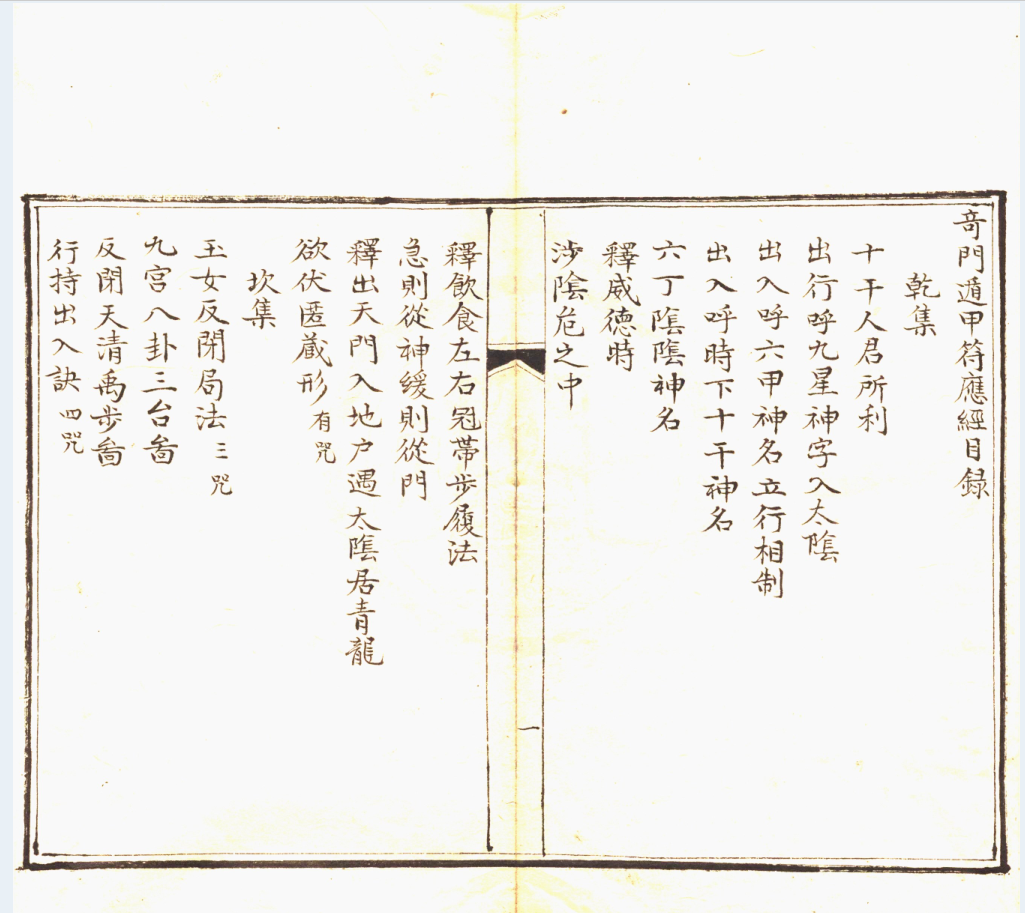 竒門遁甲符應經目録
乾集
十干人君所利
出行呼九星神字入太隂
出入呼六甲神名立行相制
出入呼時下十干神名
六丁隂隂神名
釋威德時
涉隂危之中
一
釋飲食左右冠帶步履法
急則從神緩則從門
釋出天門入地户遇太隂居青龍
欲伏匿藏形有咒
坎集
玉女反閉局法三咒
九宫八卦三台啚
反閉天清禹步啚
行持出入訣四咒